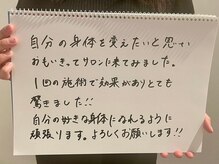 自分の身体を変えたいと思い
おもいきってサロンに来てみました。
1回の施術で効果がありとても
驚きました!!
自分の好きな身体になれるように
頑張ります。よろしくお願いします!!